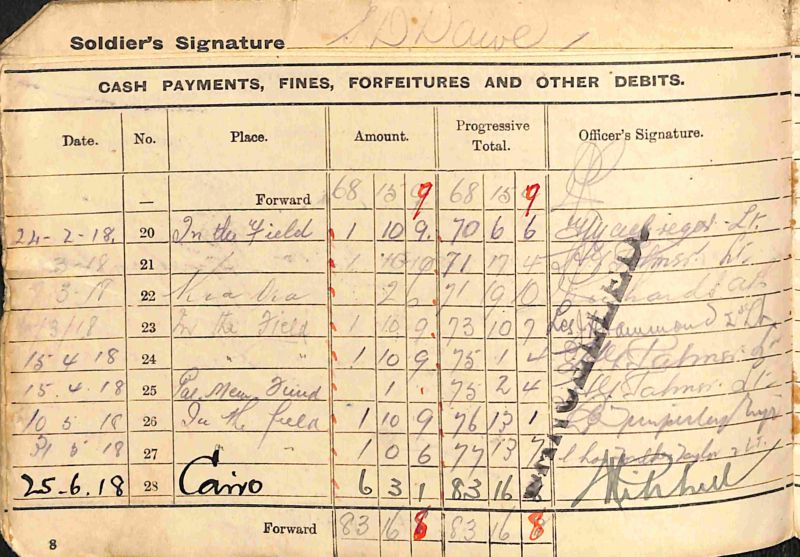 Soldier's Signature S D Dawe
CASH PAYMENTS, FINES, FORFEITURES AND OTHER DEBITS.
Date. No. Place. Amount. Progressive Total. Officer's Signature.
— Forward 68 15 9 68 15 9
24-2-18. 20 In the Field 1 10 9. 70 6 6 Lt.
3-18 21 " " 1 10 9 71 17 4 Palmer Lt.
3-18 22 2 6 71 19 10
/3/18 23 In the Field 1 10 9 73 10 7 Hammond 2nd Lt
15 4 18 24 " " 1 10 9 75 1 4 Palmer Lt
15.4.18 25 Pal. Mem. Fund 1 . 75 2 4 Palmer Lt
10 5 18 26 In the field 1 10 9 76 13 1
31 5 18 27 " 1 0 6 77 13 7 Taylor 2 Lt.
25-6.18 28 Cairo 6 3 1 83 16 8 Mitchell
Forward 83 16 8 83 16 8
8